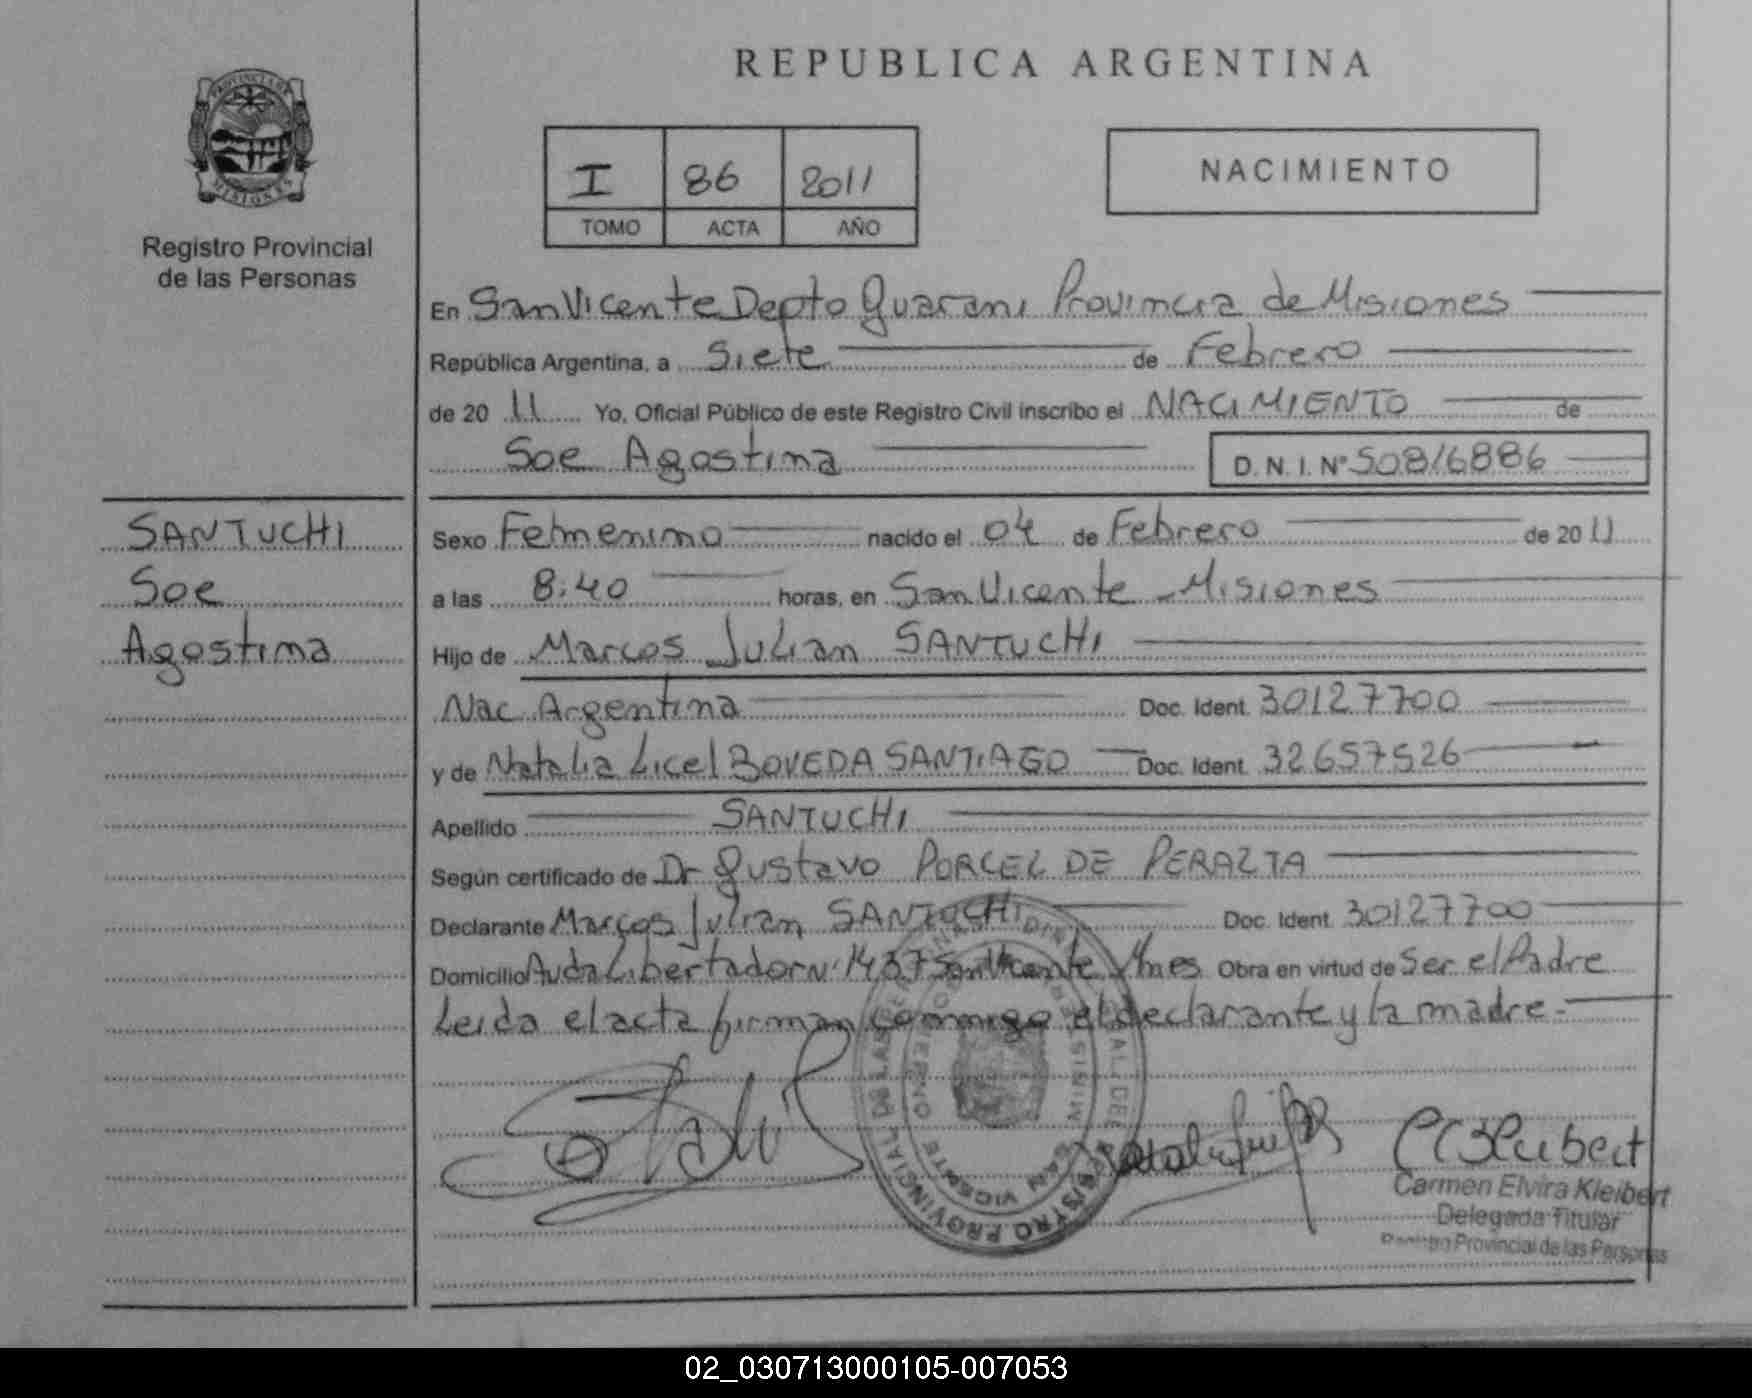 PROVINCIA DE
MISIONES
Registro Provincial
de las Personas
REPUBLICA ARGENTINA
I 86 2011
TOMO ACTA AÑO
NACIMIENTO
En San Vicente Depto Guarani Provincia de Misiones
República Argentina, a Siete de Febrero
de 2011 Yo, Oficial Público de este Registro Civil inscribo el NACIMIENTO de
Soe Agostina D.N.I. Nº 50816886
SANTUCHI
Soe
Agostina
Sexo Femenino nacido el 04 de Febrero de 2011
a las 8:40 horas, en San Vicente - Misiones
Hijo de Marcos Julian SANTUCHI
Nac. Argentina Doc. Ident. 30127700
y de Natalia Licel BOVEDA SANTIAGO Doc. Ident. 32657526
Apellido SANTUCHI
Según certificado de Dr Gustavo PORCEL DE PERALTA
Declarante Marcos Julian SANTUCHI Doc. Ident. 30127700
Domicilio Avda Libertador Nº 1437 San Vicente Mnes Obra en virtud de Ser el Padre
Leida el acta firman conmigo el declarante y la madre.-
REGISTRO PROVINCIAL DE LAS
SAN VICENTE
Carmen Elvira Kleibert
Delegada Titular
Registro Provincial de las Personas
02_030713000105-007053